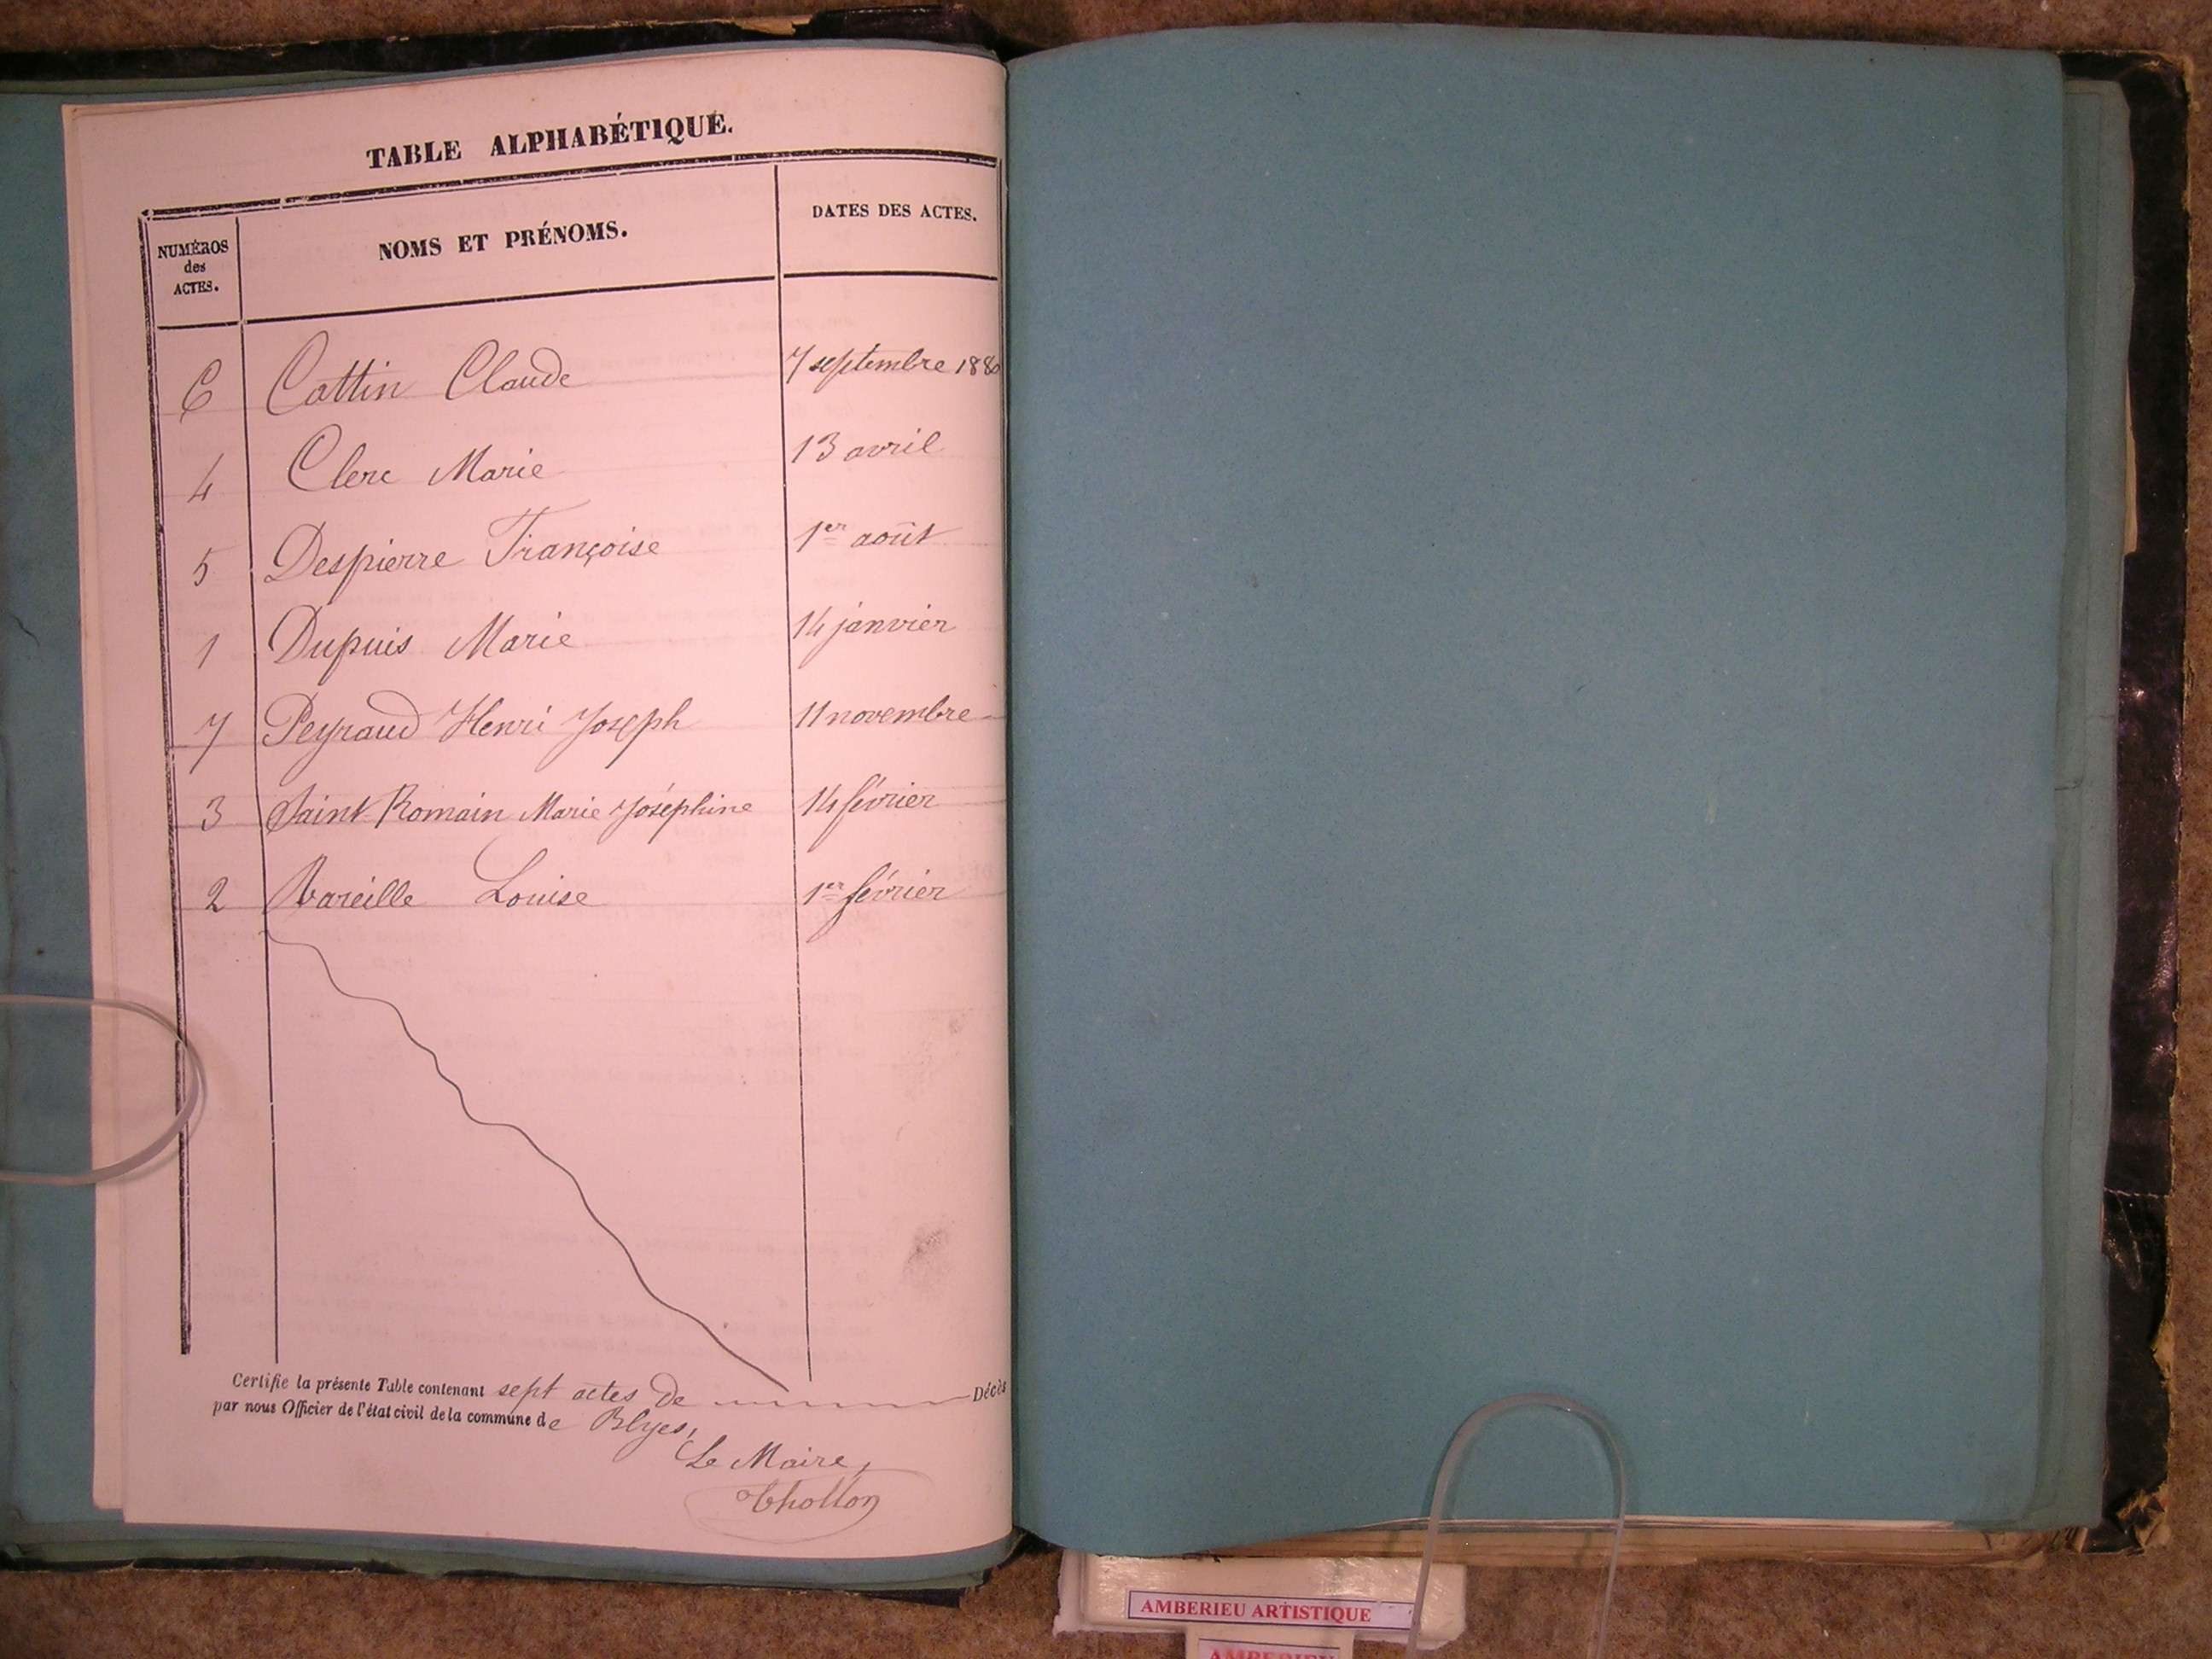 TABLE ALPHABÉTIQUE.
NUMÉROS des ACTES. NOMS ET PRÉNOMS. DATES DES ACTES.
6 Cattin Claude 7 septembre 1880
4 Clerc Marie 13 avril
5 Despierre Françoise 1er août
1 Dupuis Marie 14 janvier
7 Peyraud Henri Joseph 11 novembre
3 Saint-Romain Marie Joséphine 14 février
2 Vareille Louise 1er février
Certifie la présente Table contenant sept actes de Décès
par nous Officier de l'état civil de la commune de Blyes,
Le Maire,
Thollon
AMBERIEU ARTISTIQUE
AMBERIEU